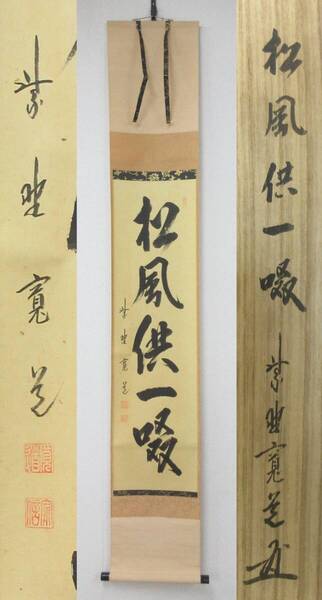 松風供一啜 紫野寛道
松風供一啜
紫野寛道
紫野寛道